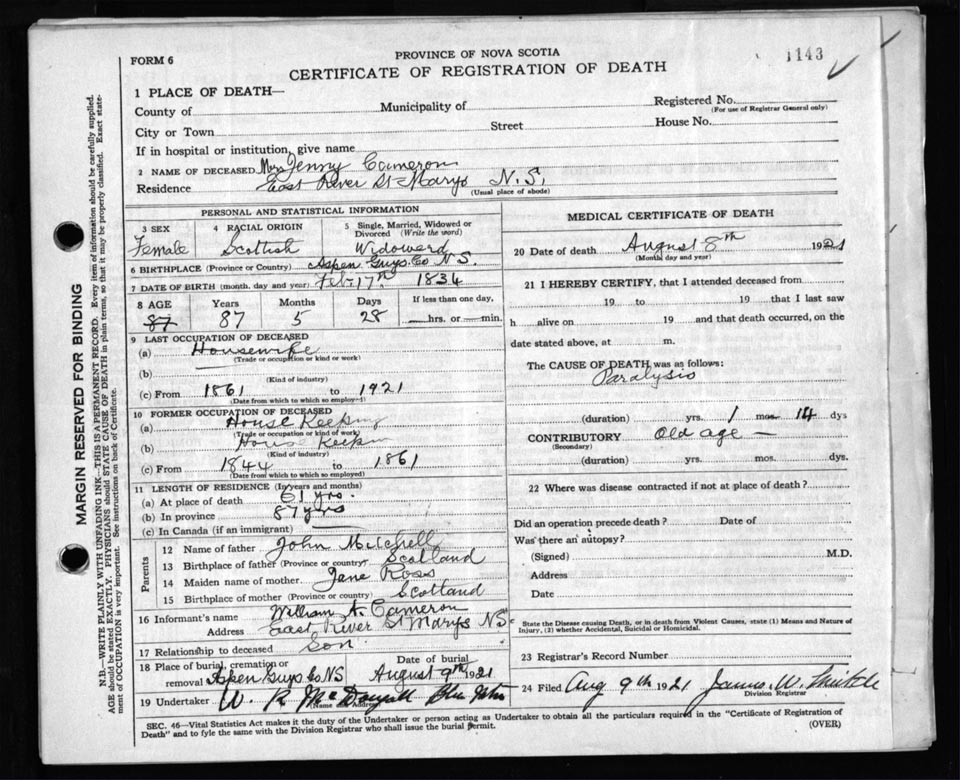 FORM 6
PROVINCE OF NOVA SCOTIA
1143
CERTIFICATE OF REGISTRATION OF DEATH
1 PLACE OF DEATH—
County of
Municipality of
Registered No.
(For use of Registrar General only)
City or Town
Street
House No.
If in hospital or institution, give name
2 NAME OF DECEASED Mrs Jenny Cameron
Residence East River St Marys N.S.
(Usual place of abode)
PERSONAL AND STATISTICAL INFORMATION
3 SEX
Female
4 RACIAL ORIGIN
Scottish
5 Single, Married, Widowed or Divorced (Write the word)
Widowerd
6 BIRTHPLACE (Province or Country) Aspen Guys. Co N S.
7 DATE OF BIRTH (month, day and year) Feb 17th 1834
8 AGE Years Months Days If less than one day,
87 87 5 28 hrs. or min.
9 LAST OCCUPATION OF DECEASED
(a) Housewife
(Trade or occupation or kind or work)
(b)
(Kind of industry)
(c) From 1861 to 1921
(Date from which to which so employed)
10 FORMER OCCUPATION OF DECEASED
(a) House Keeping
(Trade or occupation or kind of work)
(b) House Keepin
(Kind of industry)
(c) From 1844 to 1861
(Date from which to which so employed)
11 LENGTH OF RESIDENCE (In years and months)
(a) At place of death 61 yrs.
(b) In province 87 yrs
(c) In Canada (if an immigrant)
Parents
12 Name of father John Mitchell
13 Birthplace of father (Province or country) Scotland
14 Maiden name of mother Jane Ross
15 Birthplace of mother (Province or country) Scotland
16 Informant's name William A. Cameron
Address East River St Marys NS
17 Relationship to deceased Son
18 Place of burial, cremation or removal Aspen Guys Co NS
Date of burial August 9th 1921
19 Undertaker W. R McDougall
(Name and Address)
MEDICAL CERTIFICATE OF DEATH
20 Date of death August 8th 1921
(Month, day and year)
21 I HEREBY CERTIFY, that I attended deceased from
19 to 19 that I last saw
h alive on 19 and that death occurred, on the
date stated above, at m.
The CAUSE OF DEATH was as follows:
Paralysis
(duration) yrs. 1 mos. 14 dys
CONTRIBUTORY Old age —
(Secondary)
(duration) yrs. mos. dys.
22 Where was disease contracted if not at place of death?
Did an operation precede death? Date of
Was there an autopsy?
(Signed) M.D.
Address
Date
State the Disease causing Death, or in death from Violent Causes, state (1) Means and Nature of
Injury, (2) whether Accidental, Suicidal or Homicidal.
23 Registrar's Record Number
24 Filed Aug 9th 1921 James W.
Division Registrar
SEC. 46—Vital Statistics Act makes it the duty of the Undertaker or person acting as Undertaker to obtain all the particulars required in the "Certificate of Registration of
Death" and to fyle the same with the Division Registrar who shall issue the burial permit.
(OVER)
MARGIN RESERVED FOR BINDING
N.B.—WRITE PLAINLY WITH UNFADING INK—THIS IS A PERMANENT RECORD. Every item of information should be carefully supplied.
AGE should be stated EXACTLY. PHYSICIANS should STATE CAUSE OF DEATH in plain terms, so that it may be properly classified. Exact state-
ment of OCCUPATION is very important. See instructions on back of Certificate.